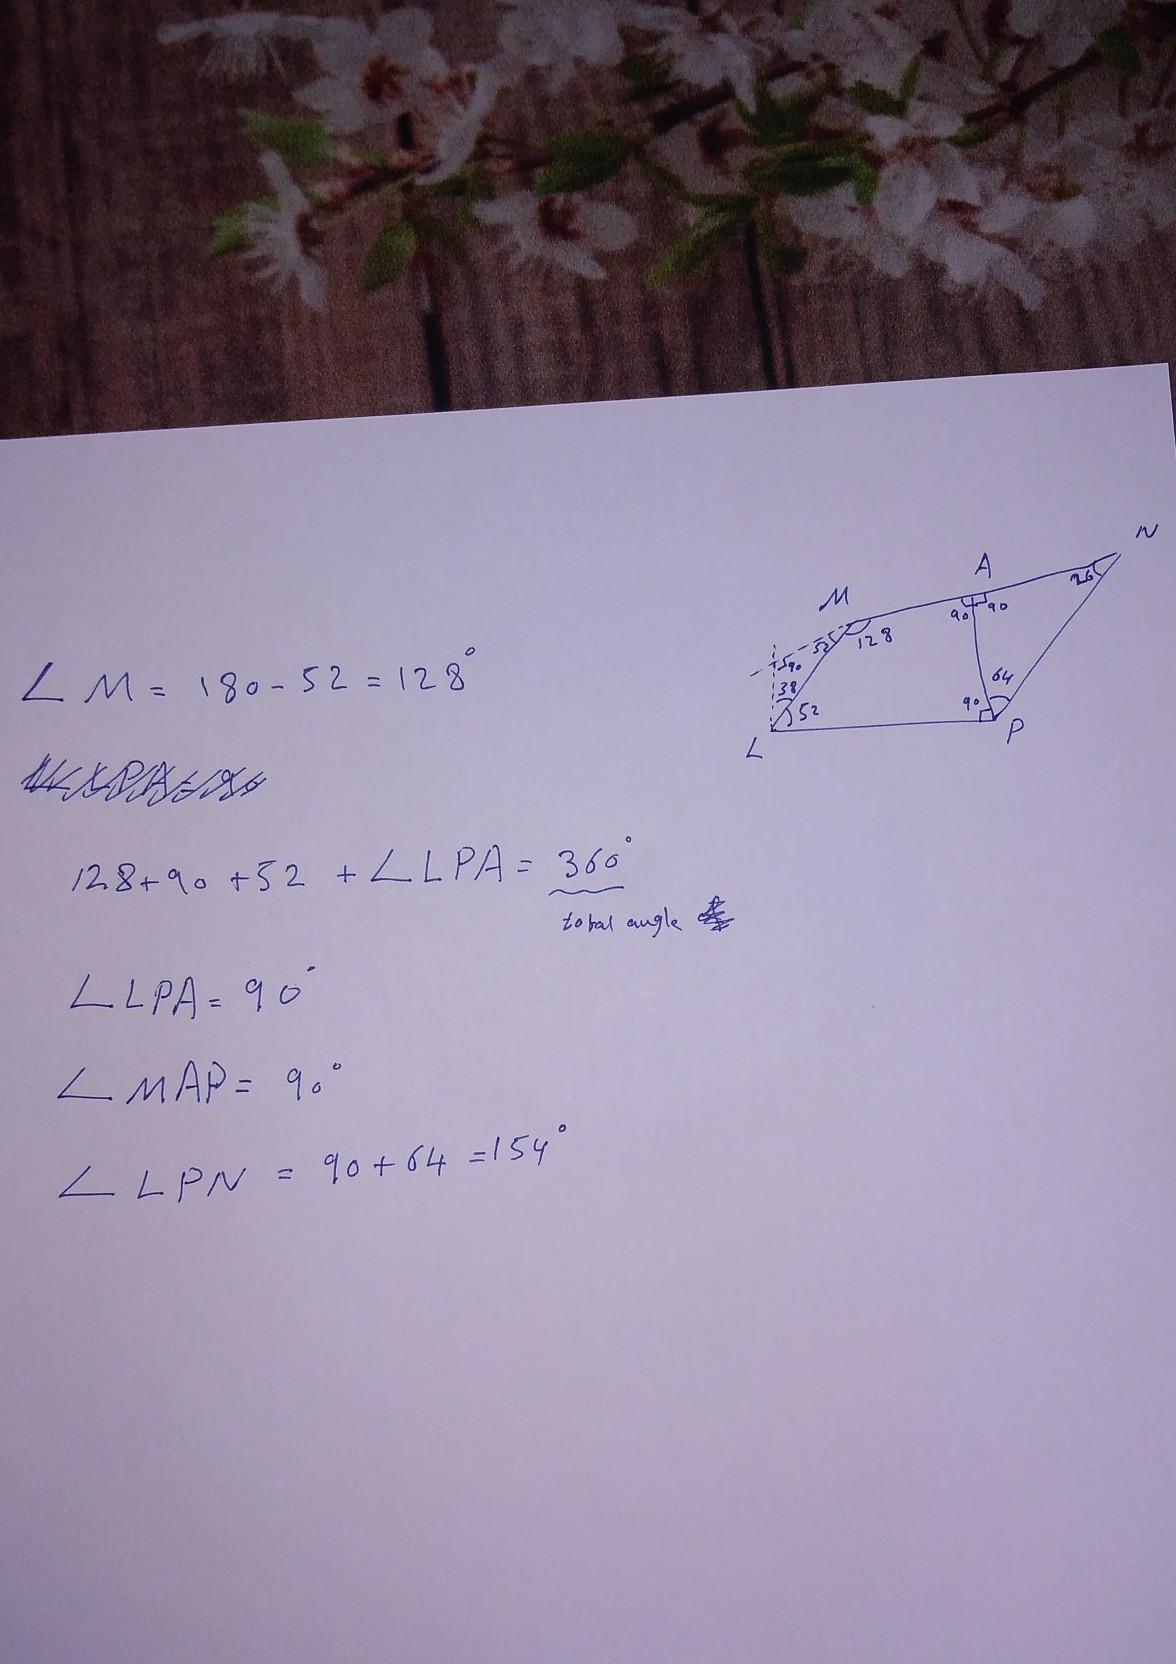 N
A
M
26
90 90
52 128
90
38
64
52
90
L
P
∠ M = 180 - 52 = 128°
128 + 90 + 52 + ∠ LPA = 360°
total angle
∠ LPA = 90°
∠ MAP = 90°
∠ LPN = 90 + 64 = 154°